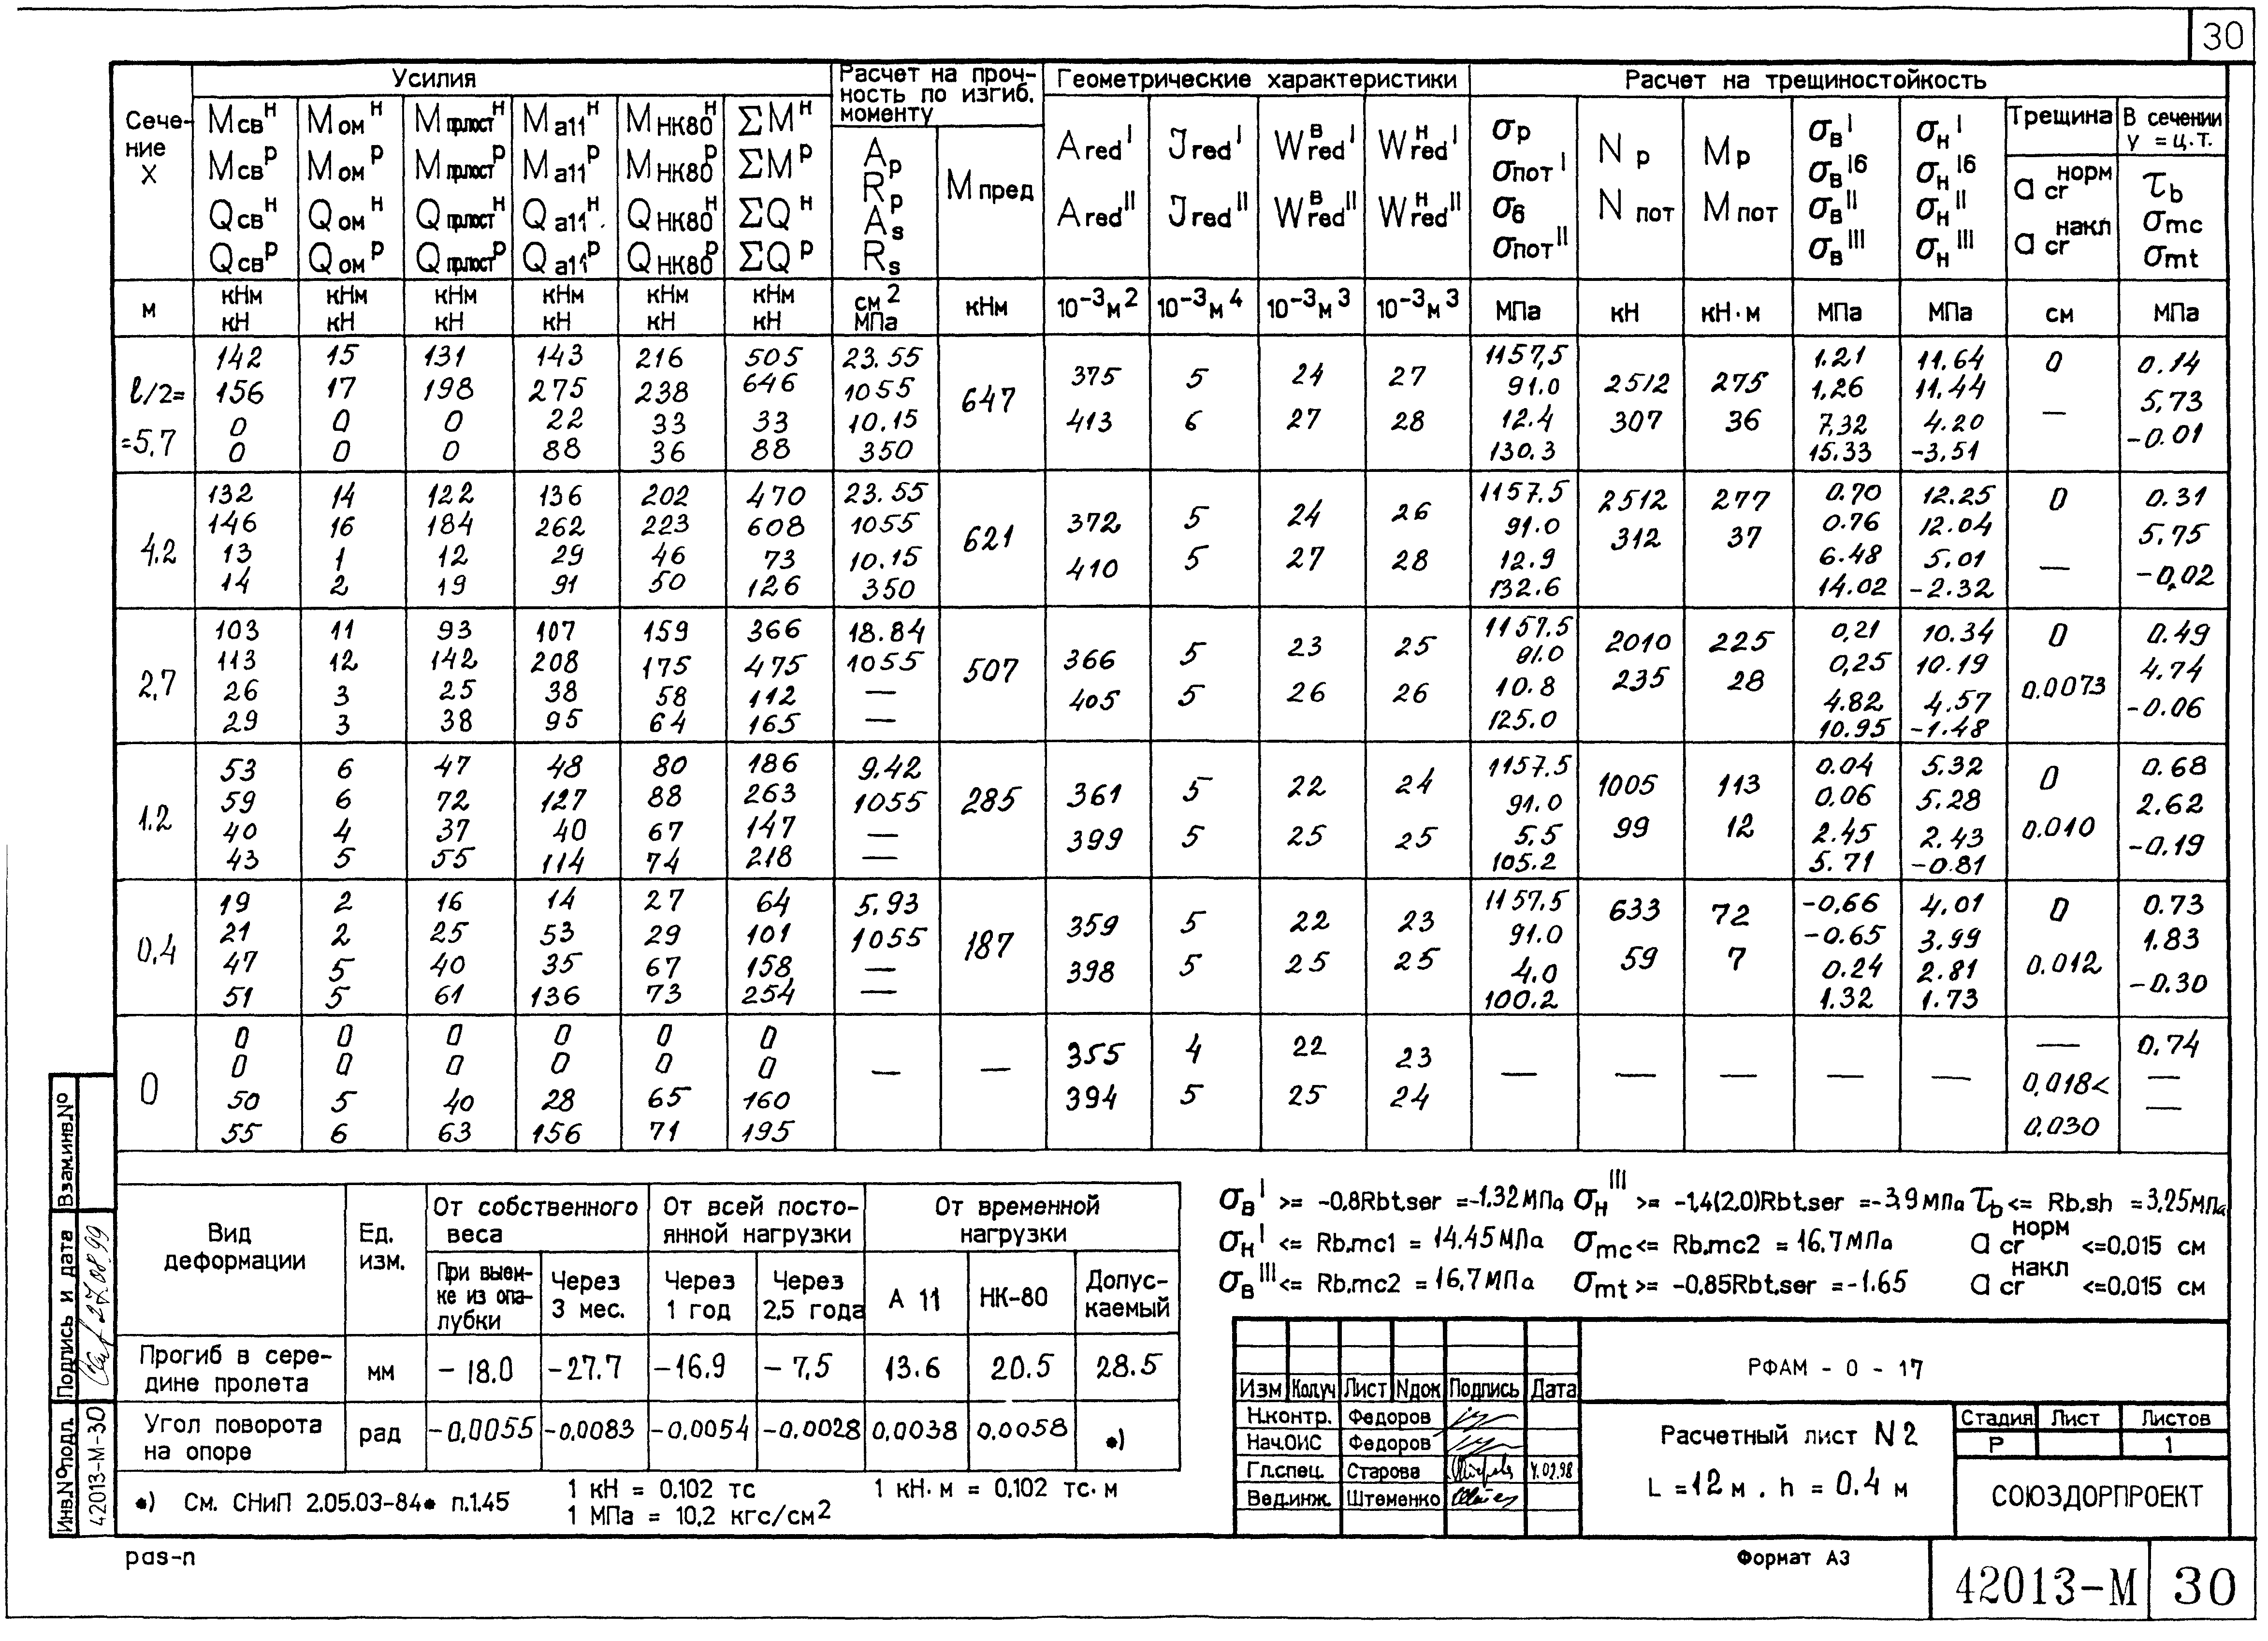 30
Сечение X | Усилия | Расчет на прочность по изгиб. моменту | Геометрические характеристики | Расчет на трещиностойкость
Mсвᴴ Mомᴴ Mпрлостᴴ Mа11ᴴ MНК80ᴴ ΣMᴴ
Mсвᴾ Mомᴾ Mпрлостᴾ Mа11ᴾ MНК80ᴾ ΣMᴾ
Qсвᴴ Qомᴴ Qпрлостᴴ Qа11ᴴ QНК80ᴴ ΣQᴴ
Qсвᴾ Qомᴾ Qпрлостᴾ Qа11ᴾ QНК80ᴾ ΣQᴾ
Ap Rp As Rs | Mпред
Ared I Jred I Wred В I Wred Н I
Ared II Jred II Wred В II Wred Н II
σр σпот I σб σпот II | Nр Nпот | Mр Mпот
σВ I σВ Iб σВ II σВ III | σН I σН Iб σН II σН III
Трещина | В сечении y = ц.т.
acr норм acr накл | τb σmc σmt
м | кНм кН | кНм кН | кНм кН | кНм кН | кНм кН | кНм кН | см² МПа | кНм | 10⁻³м² | 10⁻³м⁴ | 10⁻³м³ | 10⁻³м³ | МПа | кН | кН·м | МПа | МПа | см | МПа
ℓ/2= =5,7
142 15 131 143 216 505 23.55
156 17 198 275 238 646 1055
0 0 0 22 33 33 10.15
0 0 0 88 36 88 350
647
375 5 24 27
413 6 27 28
1157,5 91.0 12.4 130.3
2512 275
307 36
1.21 1,26 7,32 15.33
11.64 11.44 4.20 -3,51
0 —
0.14 5,73 -0.01
4.2
132 14 122 136 202 470 23.55
146 16 184 262 223 608 1055
13 1 12 29 46 73 10.15
14 2 19 91 50 126 350
621
372 5 24 26
410 5 27 28
1157.5 91.0 12.9 132.6
2512 277
312 37
0.70 0.76 6.48 14.02
12.25 12.04 5.01 -2.32
0 —
0.31 5.75 -0,02
2,7
103 11 93 107 159 366 18.84
113 12 142 208 175 475 1055
26 3 25 38 58 112 —
29 3 38 95 64 165 —
507
366 5 23 25
405 5 26 26
1157.5 91.0 10.8 125.0
2010 225
235 28
0,21 0,25 4.82 10.95
10.34 10.19 4.57 -1.48
0 0.0073
0.49 4.74 -0.06
1.2
53 6 47 48 80 186 9.42
59 6 72 127 88 263 1055
40 4 37 40 67 147 —
43 5 55 114 74 218 —
285
361 5 22 24
399 5 25 25
1157.5 91.0 5,5 105.2
1005 113
99 12
0.04 0,06 2.45 5.71
5.32 5.28 2.43 -0.81
0 0.010
0.68 2.62 -0.19
0,4
19 2 16 14 27 64 5.93
21 2 25 53 29 101 1055
47 5 40 35 67 158 —
51 5 61 136 73 254 —
187
359 5 22 23
398 5 25 25
1157.5 91.0 4.0 100.2
633 72
59 7
-0,66 -0.65 0.24 1.32
4.01 3.99 2.81 1.73
0 0.012
0.73 1.83 -0.30
0
0 0 0 0 0 0
0 0 0 0 0 0
50 5 40 28 65 160
55 6 63 156 71 195
— —
355 4 22 23
394 5 25 24
— — — — —
— 0,018< 0,030
0,74 — —
Вид деформации | Ед. изм. | От собственного веса | От всей постоянной нагрузки | От временной нагрузки
При выемке из опалубки | Через 3 мес. | Через 1 год | Через 2,5 года | А 11 | НК-80 | Допускаемый
Прогиб в середине пролета | мм | -18.0 | -27.7 | -16.9 | -7,5 | 13.6 | 20.5 | 28.5
Угол поворота на опоре | рад | -0,0055 | -0,0083 | -0,0054 | -0,0028 | 0,0038 | 0,0058 | •)
•) См. СНиП 2.05.03-84* п.1.45
1 кН = 0,102 тс 1 кН·м = 0,102 тс·м
1 МПа = 10,2 кгс/см2
σВ I >= -0,8Rbt,ser =-1.32МПа σН III >= -1,4(2,0)Rbt,ser =-3,9МПа τb <= Rb,sh =3,25МПа
σН I <= Rb,mc1 = 14.45МПа σmc <= Rb,mc2 = 16,7МПа acr норм <=0,015 см
σВ III <= Rb,mc2 = 16,7МПа σmt >= -0,85Rbt,ser =-1.65 acr накл <=0,015 см
Изм Колуч Лист Nдок Подпись Дата
Н.контр. Федоров
Нач.ОИС Федоров
Гл.спец. Старова 4.02.98
Вед.инж. Штеменко
РФАМ - 0 - 17
Расчетный лист N2
L =12 м, h = 0.4 м
Стадия Лист Листов
Р 1
СОЮЗДОРПРОЕКТ
Взам.инв.Nº
Подпись и дата 27.08.99
Инв.Nº подл. 42013-М-30
pas-n
Формат А3
42013-М 30